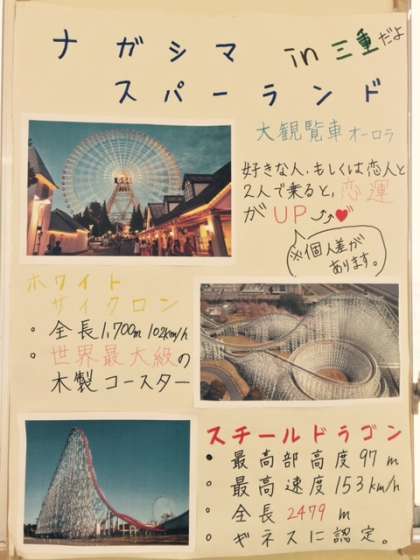 ナガシマ in 三重だよ
スパーランド
大観覧車オーロラ
好きな人、もしくは恋人と
2人で乗ると、恋運
がUP
※個人差が
あります。
ホワイト
サイクロン
・全長1,700m 102km/h
・世界最大級の
木製コースター
スチールドラゴン
・最高部高度97m
・最高速度153km/h
・全長2479m
・ギネスに認定。